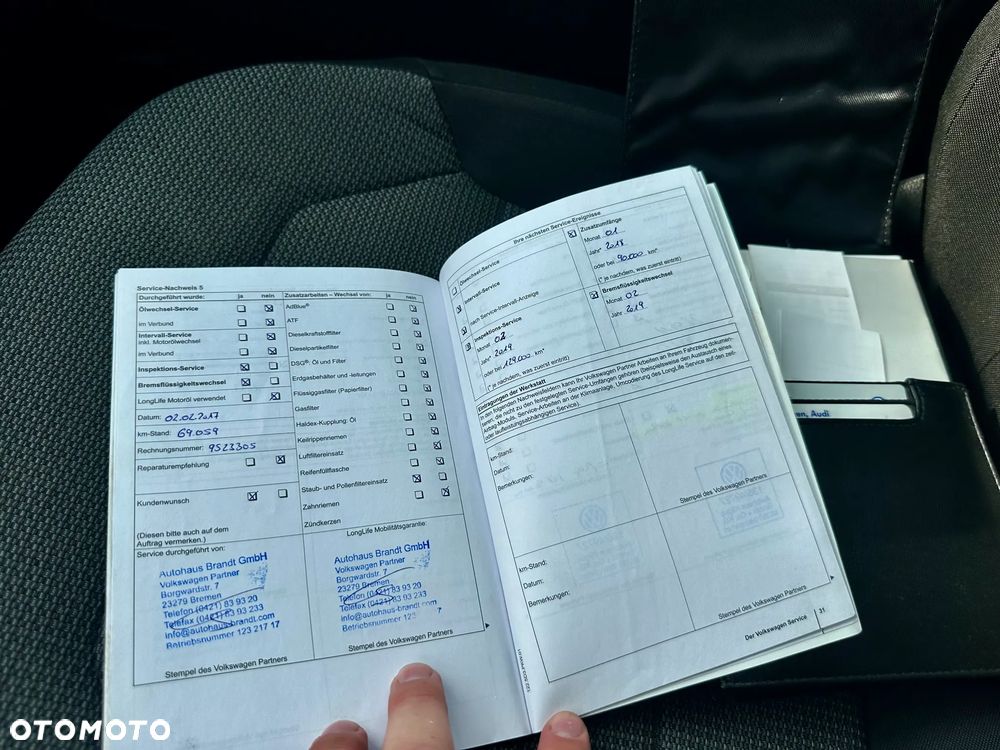 Service-Nachweis 5
Durchgeführt wurde: ja nein
Ölwechsel-Service
im Verbund
Intervall-Service
inkl. Motorölwechsel
im Verbund
Inspektions-Service
Bremsflüssigkeitswechsel
LongLife Motoröl verwendet
Datum: 02.02.2017
km-Stand: 69.059
Rechnungsnummer: 9523305
Reparaturempfehlung
Kundenwunsch
(Diesen bitte auch auf dem
Auftrag vermerken.)
Service durchgeführt von:
Autohaus Brandt GmbH
Volkswagen Partner
Borgwardstr. 7
23279 Bremen
Telefon (0421) 83 93 20
Telefax (0421) 83 93 233
info@autohaus-brandt.com
Betriebsnummer 123 217 17
Stempel des Volkswagen Partners
Zusatzarbeiten – Wechsel von: ja nein
AdBlue®
ATF
Dieselkraftstofffilter
Dieselpartikelfilter
DSG®: Öl und Filter
Erdgasbehälter und -leitungen
Flüssiggasfilter (Papierfilter)
Gasfilter
Haldex-Kupplung: Öl
Keilrippenriemen
Luftfiltereinsatz
Reifenfüllflasche
Staub- und Pollenfiltereinsatz
Zahnriemen
Zündkerzen
LongLife Mobilitätsgarantie:
Autohaus Brandt GmbH
Volkswagen Partner
Borgwardstr. 7
23279 Bremen
Telefon (0421) 83 93 20
Telefax (0421) 83 93 233
info@autohaus-brandt.com
Betriebsnummer 123 7
Stempel des Volkswagen Partners
Ihre nächsten Service-Ereignisse
Ölwechsel-Service
Intervall-Service
nach Service-Intervall-Anzeige
Inspektions-Service
Monat 02
Jahr* 2019
oder bei 129.000 km*
(* je nachdem, was zuerst eintritt)
Zusatzumfänge
Monat 01
Jahr* 2018
oder bei 90.000 km*
(* je nachdem, was zuerst eintritt)
Bremsflüssigkeitswechsel
Monat 02
Jahr 2019
Eintragungen der Werkstatt
In den folgenden Nachweisfeldern kann Ihr Volkswagen Partner Arbeiten an Ihrem Fahrzeug dokumen-
tieren, die nicht zu den festgelegten Service-Umfängen gehören (beispielsweise den Austausch eines
Airbag-Moduls, Service-Arbeiten an der Klimaanlage, Umcodierung des LongLife Service auf den zeit-
oder laufleistungsabhängigen Service).
km-Stand:
Datum:
Bemerkungen:
Stempel des Volkswagen Partners
km-Stand:
Datum:
Bemerkungen:
Stempel des Volkswagen Partners
Der Volkswagen Service 31
en, Audi
OTOMOTO